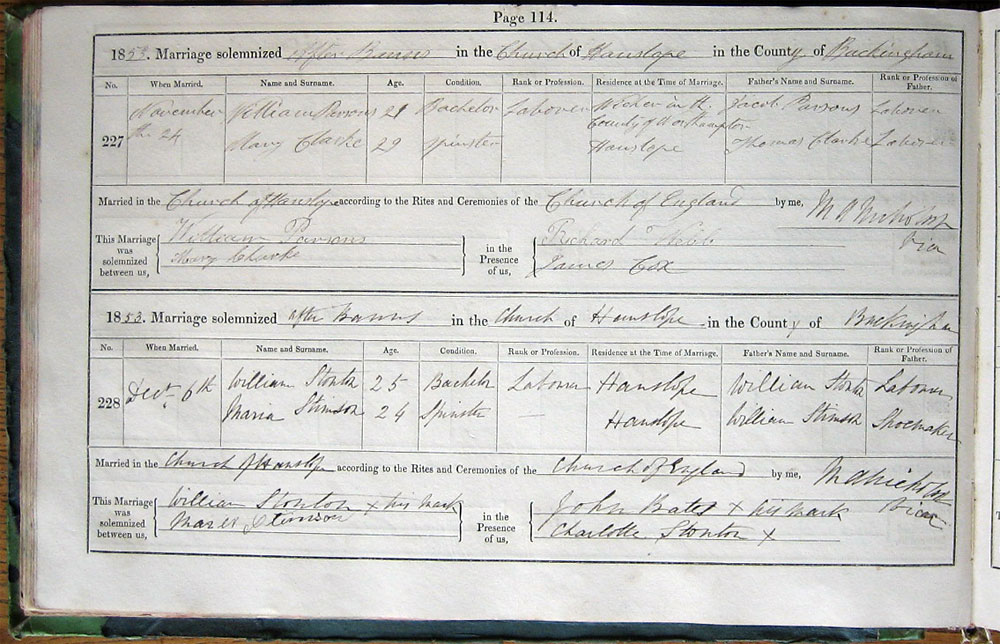 Page 114.
1853. Marriage solemnized after Banns in the Church of Hanslope in the County of Buckingham
No. When Married. Name and Surname. Age. Condition. Rank or Profession. Residence at the Time of Marriage. Father's Name and Surname. Rank or Profession of Father.
227 November the 24 William Parsons 21 Bachelor Laborer Wicken in the County of Northampton Jacob Parsons Laborer
Mary Clarke 29 Spinster Hanslope Thomas Clarke Laborer
Married in the Church of Hanslope according to the Rites and Ceremonies of the Church of England by me, M A Nicholson
Vicar
This Marriage was solemnized between us, William Parsons in the Presence of us, Richard Webb
Mary Clarke James Cox
1853. Marriage solemnized after Banns in the Church of Hanslope in the County of Buckingham
No. When Married. Name and Surname. Age. Condition. Rank or Profession. Residence at the Time of Marriage. Father's Name and Surname. Rank or Profession of Father.
228 Decr. 6th William Stonton 25 Bachelor Laborer Hanslope William Stonton Laborer
Maria Stimson 24 Spinster — Hanslope William Stimson Shoemaker
Married in the Church of Hanslope according to the Rites and Ceremonies of the Church of England by me, M A Nicholson
Vicar
This Marriage was solemnized between us, William Stonton x his mark in the Presence of us, John Bates x his mark
Stimson Charlotte Stonton x